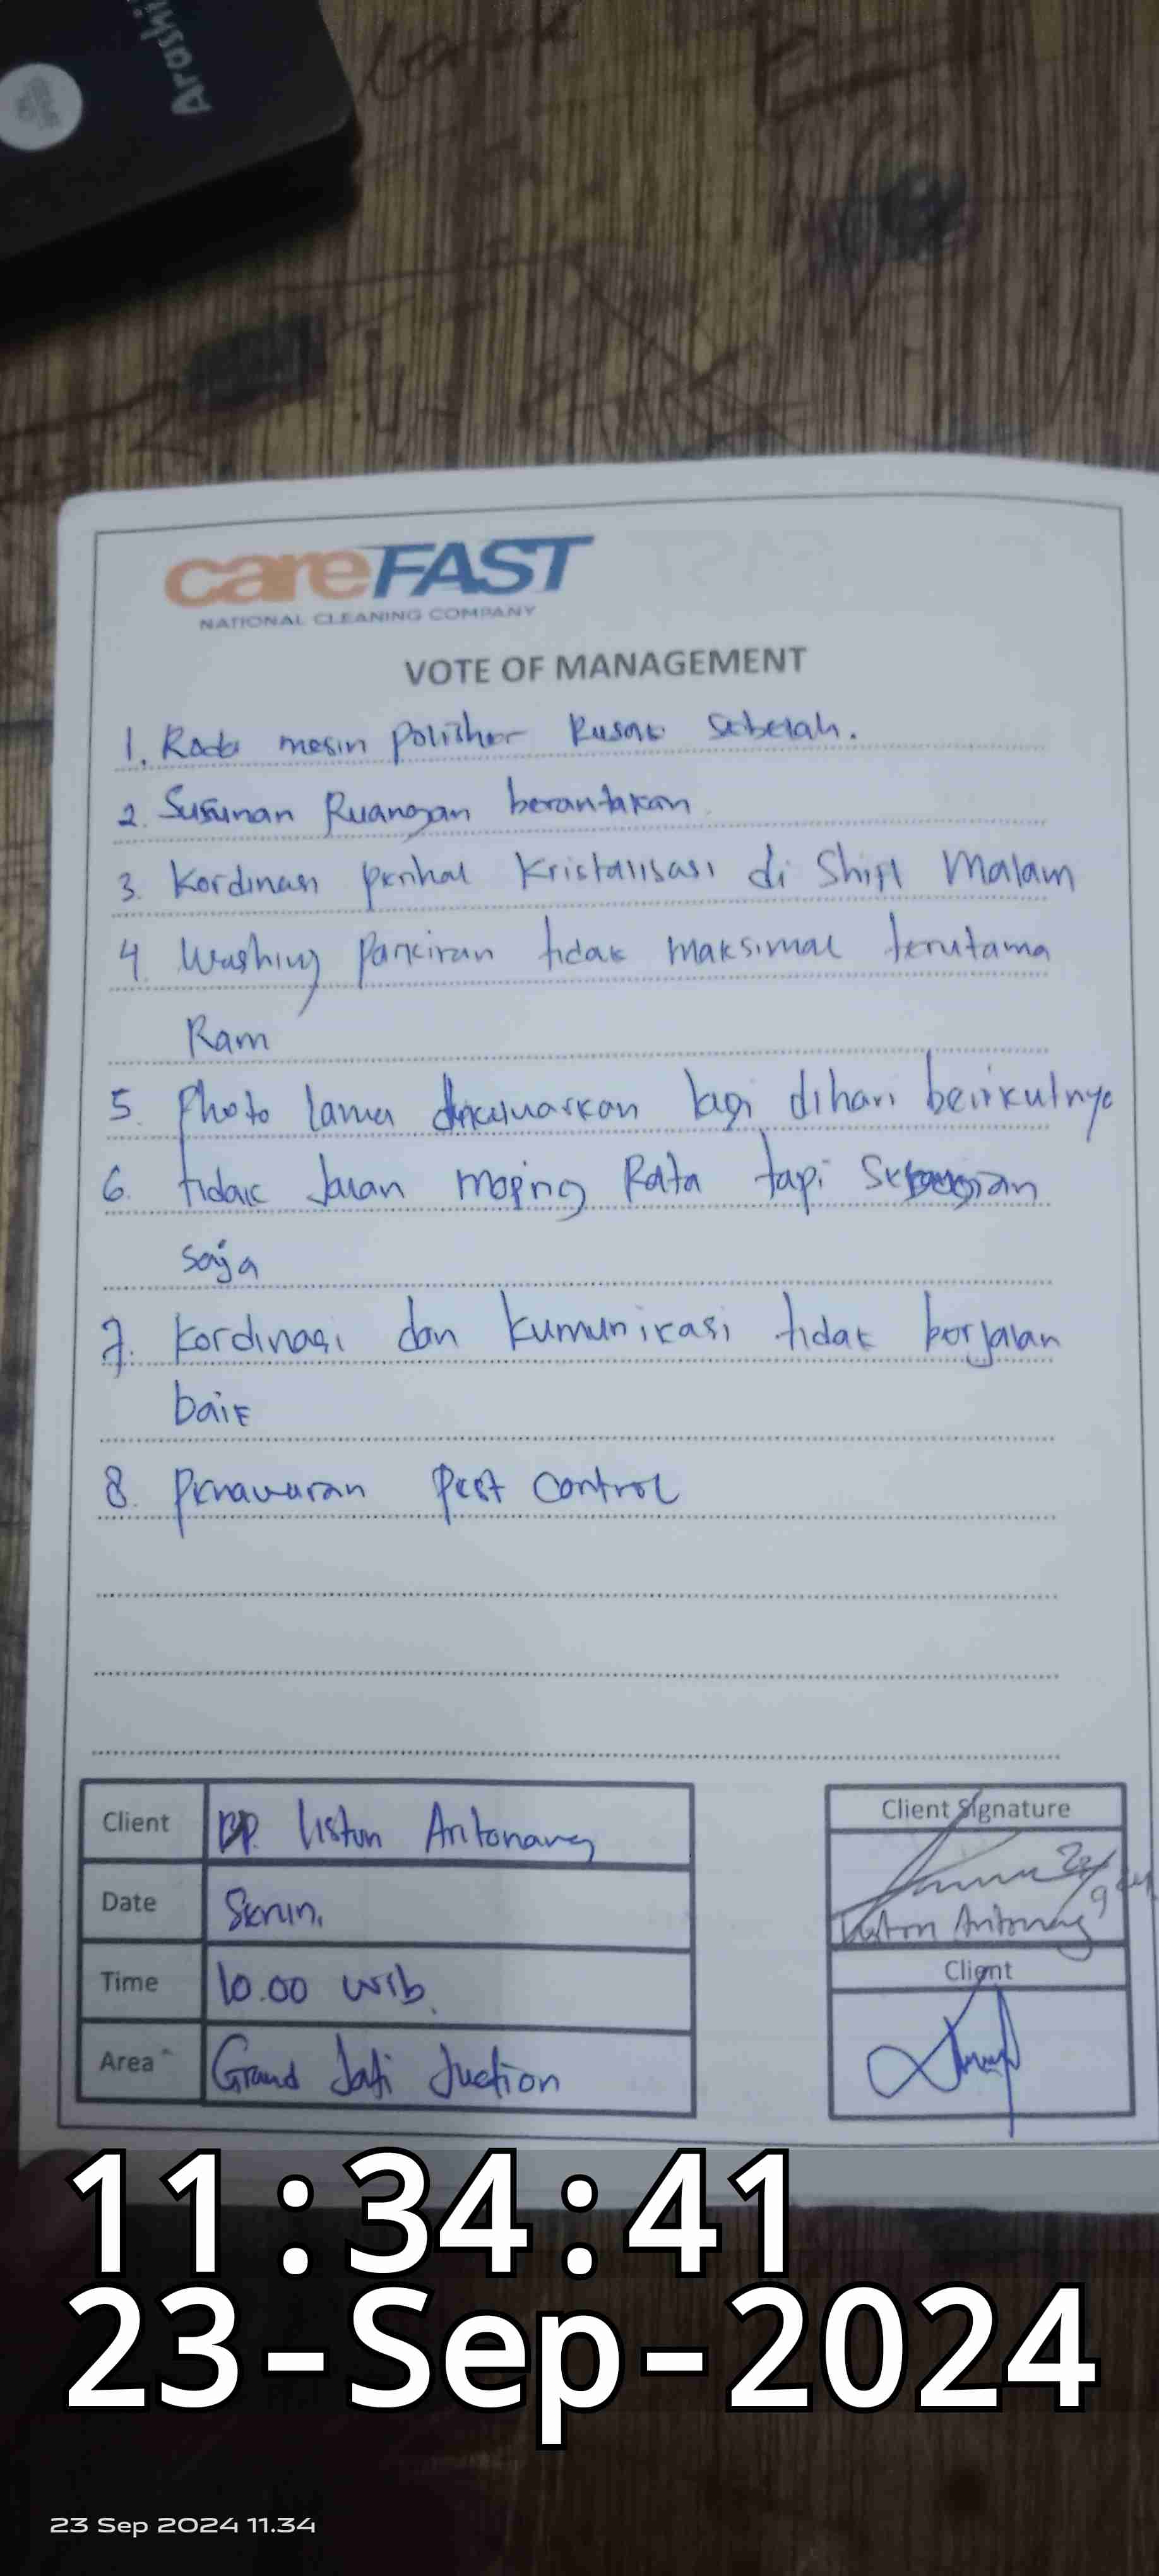 Arashi
careFAST
NATIONAL CLEANING COMPANY
VOTE OF MANAGEMENT
1. Roda mesin polisher Rusak Sebelah.
2. Susunan Ruangan berantakan
3. Kordinasi perihal Kristalisasi di Shift Malam
4. Washing parkiran tidak maksimal terutama
Ram
5. Photo lama dikeluarkan lagi dihari berikutnya
6. tidak Jalan moping Rata tapi Sebagian
saja
7. kordinasi dan kumunikasi tidak berjalan
baik
8. penawaran Pest Control
Client BP. Liston Aritonang
Date Senin,
Time 10.00 wib.
Area Grand Jati Juction
Client Signature
23/9
Liston Aritonang
Client
11:34:41
23-Sep-2024
23 Sep 2024 11.34